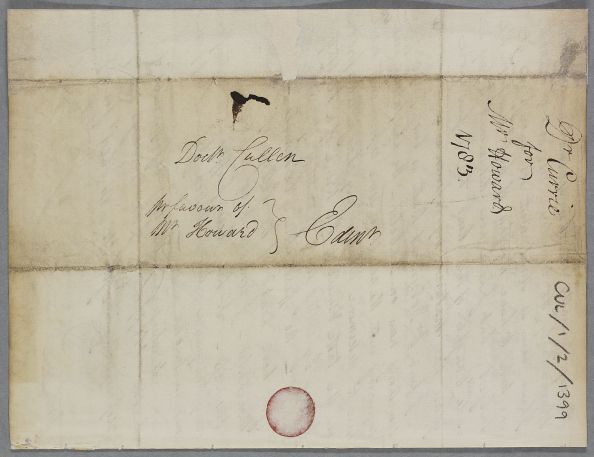 Doctr Cullen
pr favour of
Mr Howard } Edinr
Dr Currie
for
Mr Howard
1783.
CUL/1/2/1399